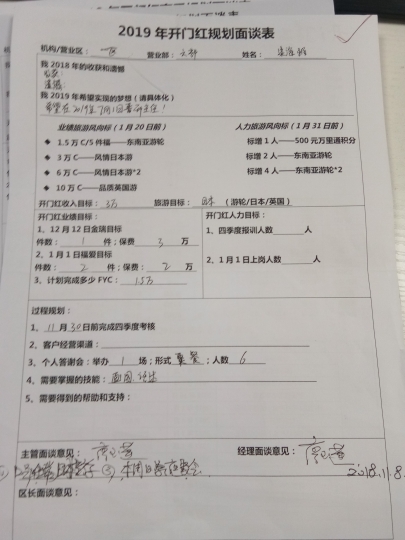 2019 年开门红规划面谈表
机构/营业区： 一区 营业部： 姓名：
我 2018 年的收获和遗憾
收获：
遗憾：
我 2019 年希望实现的梦想（请具体化）
希望在2019年7月1日
业绩旅游风向标（1 月 20 日前） 人力旅游风向标（1 月 31 日前）
1.5 万 C/5 件福——东南亚游轮 标增 1 人——500 元万里通积分
3 万 C——风情日本游 标增 2 人——东南亚游轮
6 万 C——风情日本游*2 标增 4 人——东南亚游轮*2
10 万 C——品质英国游
开门红收入目标： 3万 旅游目标： 日本 （游轮/日本/英国）
开门红业绩目标： 开门红人力目标：
1、12 月 12 日金瑞目标 1、四季度报训人数 人
件数： 1 件；保费 3 万
2、1 月 1 日福爱目标 2、1 月 1 日上岗人数 人
件数： 2 件；保费： 2 万
3、计划完成多少 FYC： 1.5万
过程规划：
1、 11 月 30 日前完成四季度考核
2、客户经营渠道：
3、个人答谢会：举办 1 场；形式 聚餐 ；人数 6
4、需要掌握的技能：
5、需要得到的帮助和支持：
主管面谈意见： 经理面谈意见：
2018.11.8
区长面谈意见：